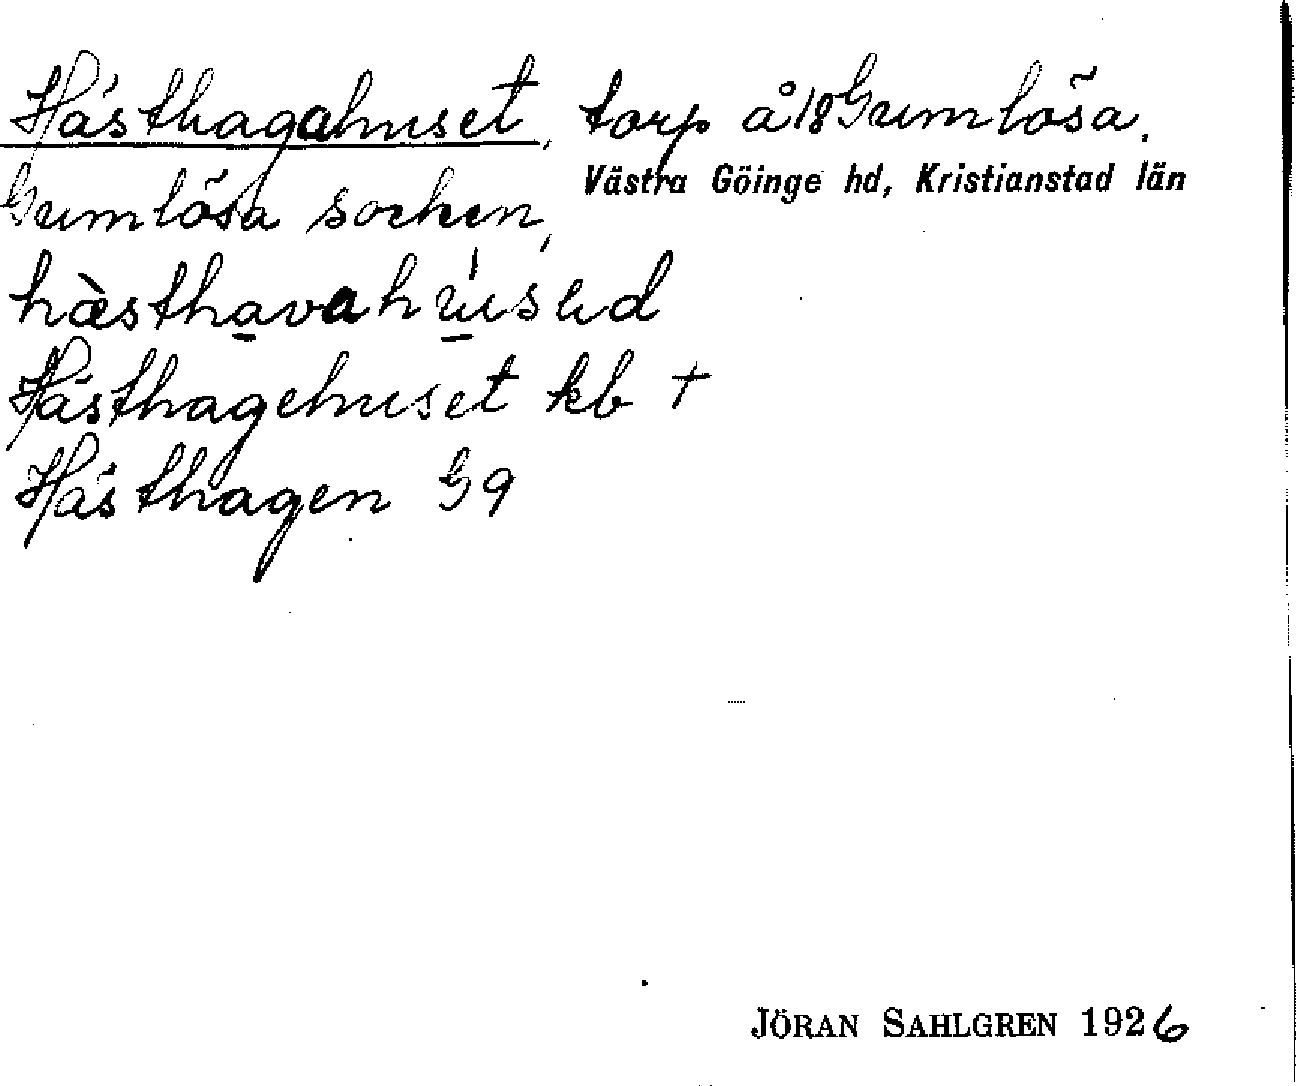 Hästhagahuset, torp å 18 Gumlösa.
Gumlösa socken, Västra Göinge hd, Kristianstad län
hæ̀sthavahúsəd
Hästhagehuset kb †
Hästhagen G9
JÖRAN SAHLGREN 1926